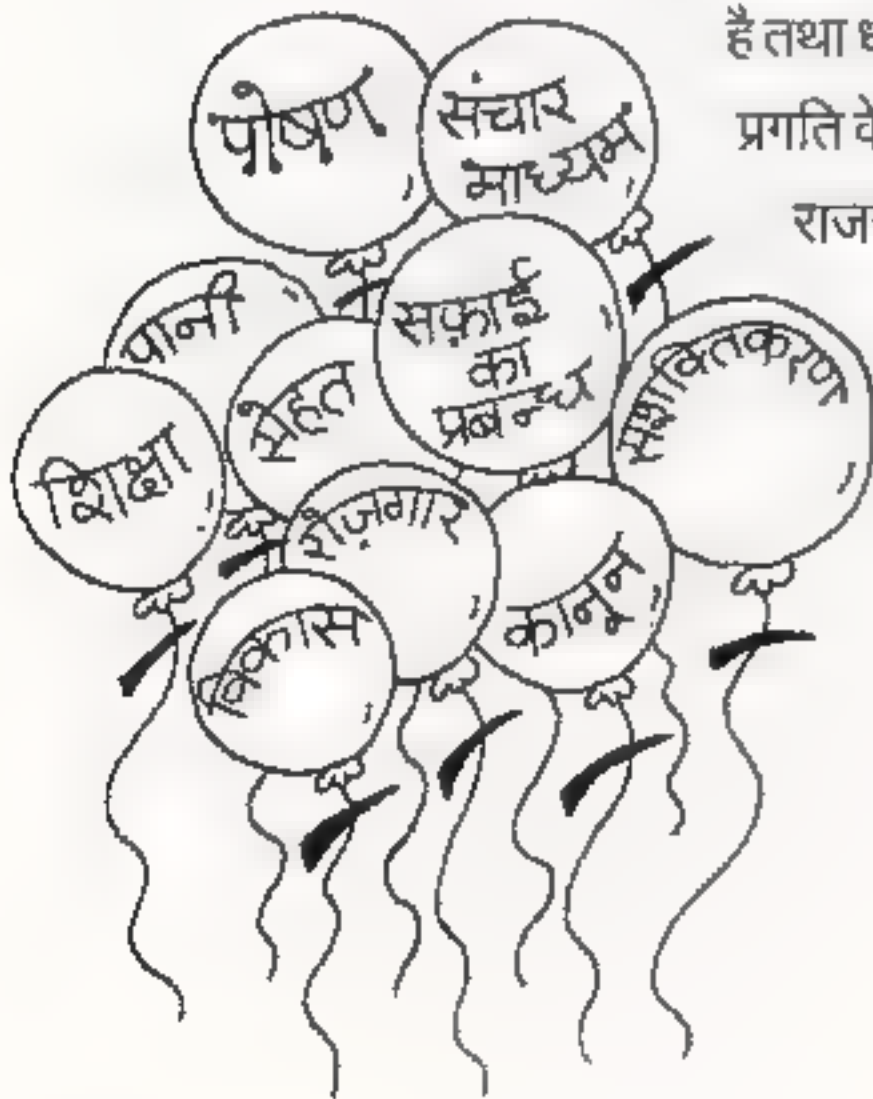 है तथा
प्रगति के
पोषण
संचार
माध्यम
पानी
सफ़ाई
का
प्रबन्ध
सशक्तिकरण
शिक्षा
सेहत
रोज़गार
कानून
विकास